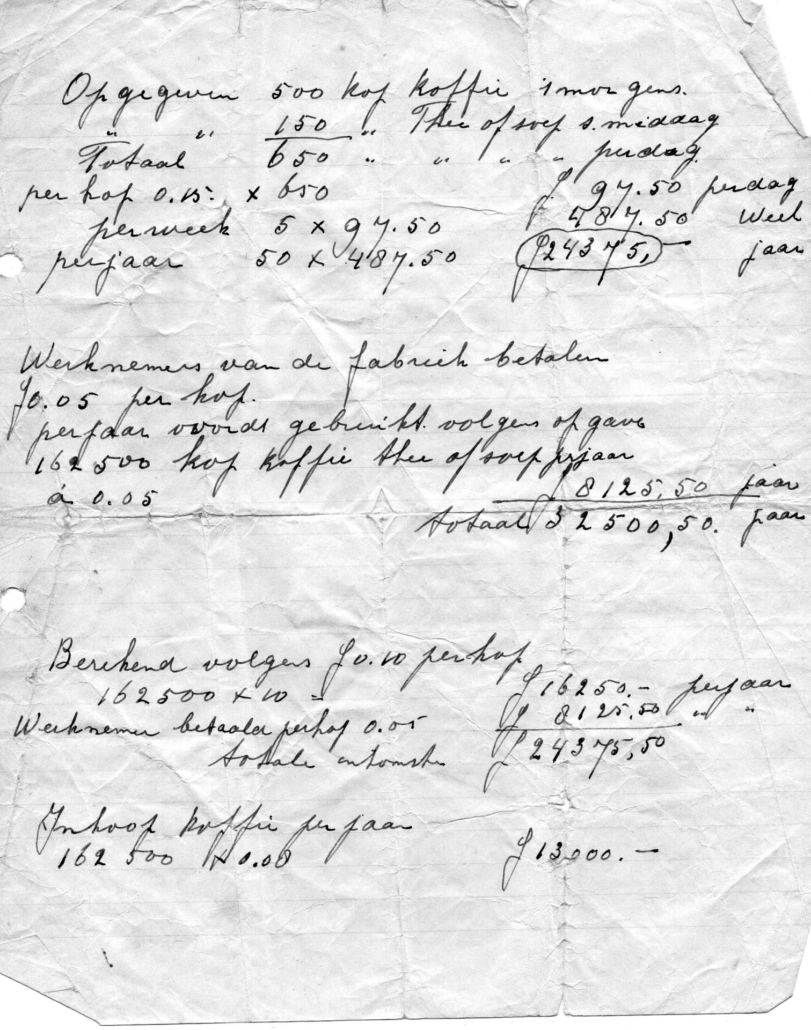 Opgegeven 500 kop koffie 's morgens.
" " 150 " Thee of soep s. middag
Totaal 650 " " " " perdag
per kop 0.15. x 650 f 97.50 perdag
perweek 5 x 97.50 f 487.50 Week
perjaar 50 x 487.50 f 24375,- jaar
Werknemers van de fabriek betalen
f 0.05 per kop.
perjaar wordt gebruikt volgens opgave
162500 kop koffie thee of soep perjaar
á 0.05 f 8125,50 jaar
totaal f 32500,50. jaar
Berekend volgens f 0.10 perkop
162500 x 10 = f 16250.- perjaar
Werknemer betaald perkop 0.05 f 8125.50 " "
totale inkomste f 24375,50
Inkoop koffie per jaar
162500 x 0.08 f 13000.-